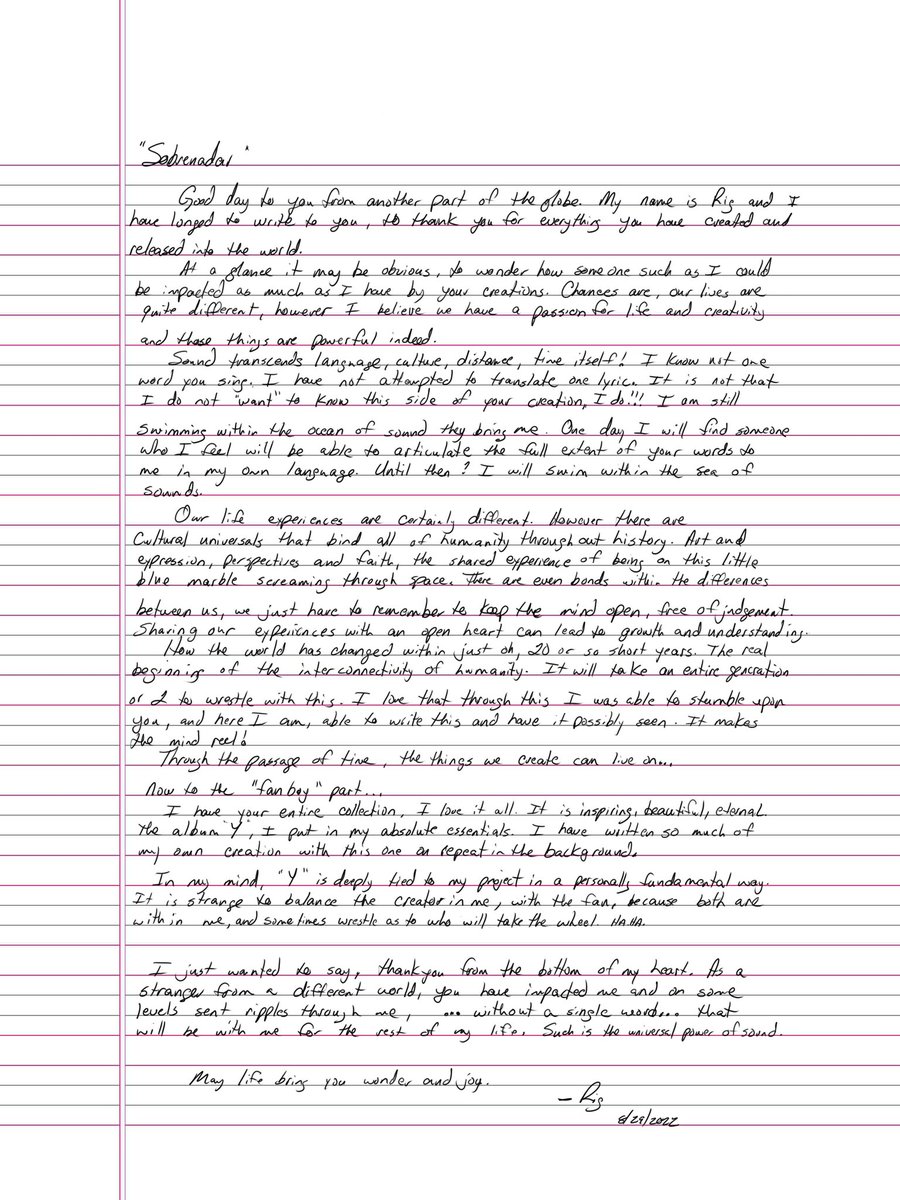 "Sobrenadar"
Good day to you from another part of the globe. My name is Rig and I
have longed to write to you, to thank you for everything you have created and
released into the world.
At a glance it may be obvious, to wonder how someone such as I could
be impacted as much as I have by your creations. Chances are, our lives are
quite different, however I believe we have a passion for life and creativity
and those things are powerful indeed.
Sound transcends language, culture, distance, time itself! I know not one
word you sing. I have not attempted to translate one lyric. It is not that
I do not "want" to know this side of your creation, I do!!! I am still
swimming within the ocean of sound they bring me. One day I will find someone
who I feel will be able to articulate the full extent of your words to
me in my own language. Until then? I will swim within the sea of
sounds.
Our life experiences are certainly different. However there are
cultural universals that bind all of humanity throughout history. Art and
expression, perspectives and faith, the shared experience of being on this little
blue marble screaming through space. There are even bonds within the differences
between us, we just have to remember to keep the mind open, free of judgement.
Sharing our experiences with an open heart can lead to growth and understanding.
How the world has changed within just oh, 20 or so short years. The real
beginning of the interconnectivity of humanity. It will take an entire generation
or 2 to wrestle with this. I love that through this I was able to stumble upon
you, and here I am, able to write this and have it possibly seen. It makes
the mind reel!
Through the passage of time, the things we create can live on...
Now to the "fan boy" part...
I have your entire collection, I love it all. It is inspiring, beautiful, eternal.
The album "Y", I put in my absolute essentials. I have written so much of
my own creation with this one on repeat in the background.
In my mind, "Y" is deeply tied to my project in a personally fundamental way.
It is strange to balance the creator in me, with the fan, because both are
within me, and sometimes wrestle as to who will take the wheel. HA.HA.
I just wanted to say, thankyou from the bottom of my heart. As a
stranger from a different world, you have impacted me and on some
levels sent ripples through me, ... without a single word... that
will be with me for the rest of my life. Such is the universal power of sound.
May life bring you wonder and joy.
— Rig
8/29/2022